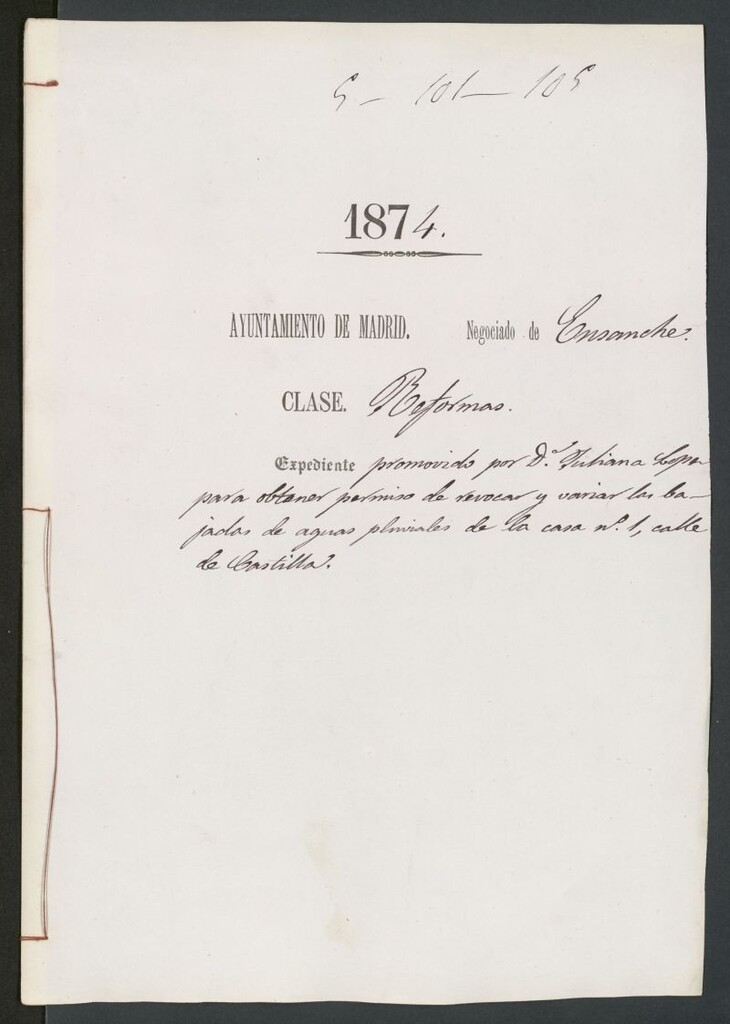 5 - 101 - 105
1874.
AYUNTAMIENTO DE MADRID. Negociado de Ensanche.
CLASE. Reformas.
Expediente promovido por D.ª Juliana Lope
para obtener permiso de revocar y variar las ba-
jadas de aguas pluviales de la casa nº. 1, calle
de Castilla.